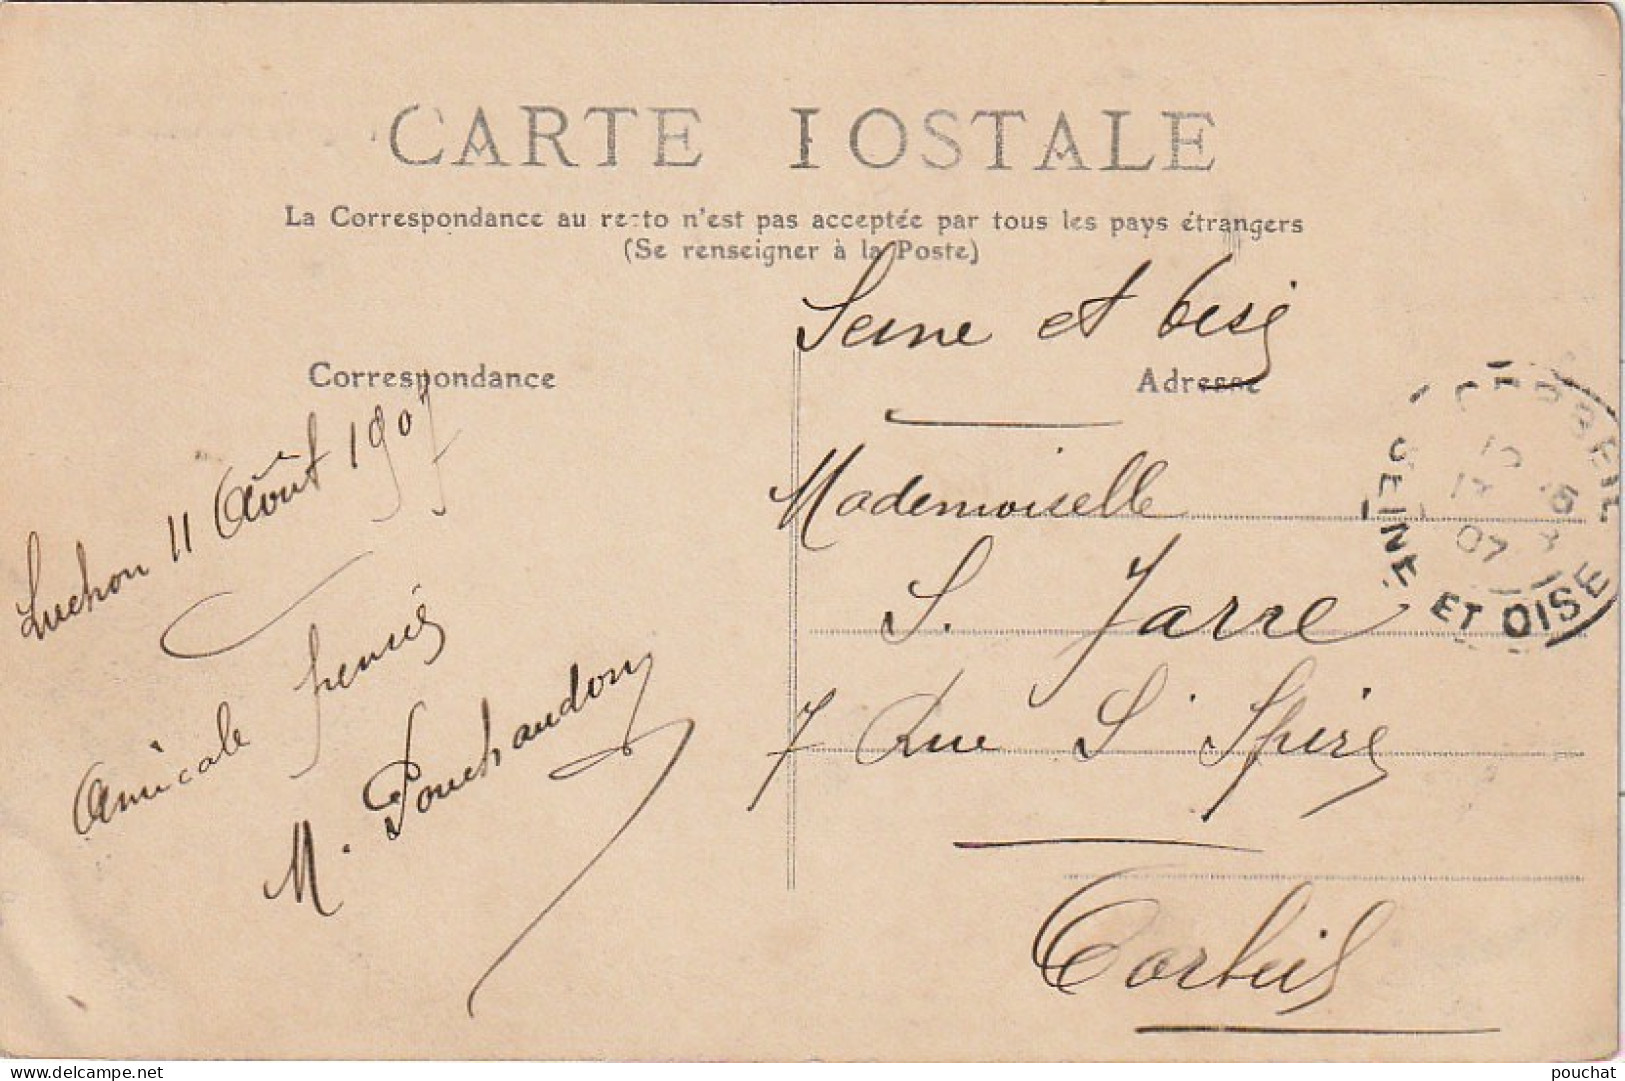 CARTE POSTALE
La Correspondance au recto n'est pas acceptée par tous les pays étrangers
(Se renseigner à la Poste)
Correspondance
Luchon 11 Août 1907
Amicale pensée
M. Pouchandon
Seine et Oise
Adresse
Mademoiselle
S. Jarre
7 Rue St Spire
Corbeil
CORBEIL
07
SEINE ET OISE
www.delcampe.net
pouchat